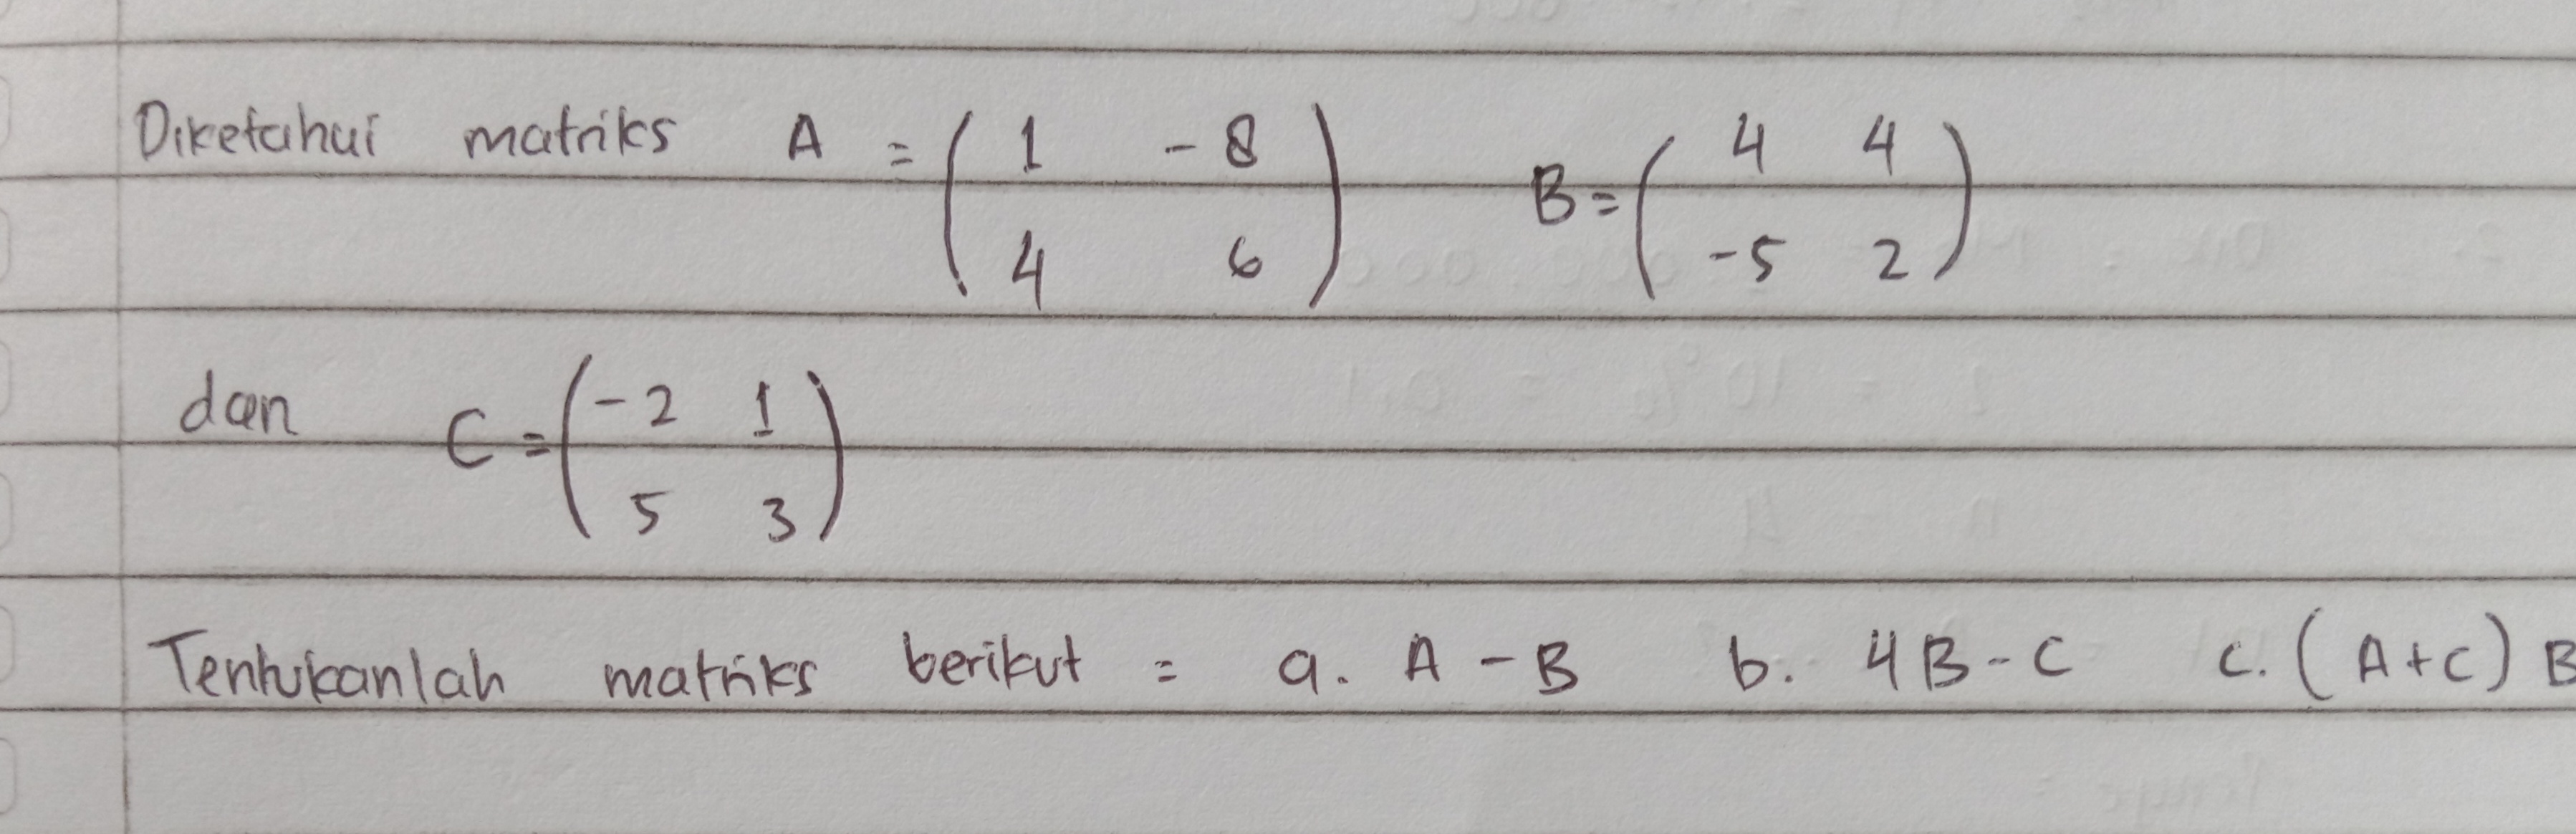 Diketahui matriks A = ( 1 -8 ) B = ( 4 4 )
( 4 6 ) ( -5 2 )
dan C = ( -2 1 )
( 5 3 )
Tentukanlah matriks berikut = a. A - B b. 4B - C c. (A+C) B